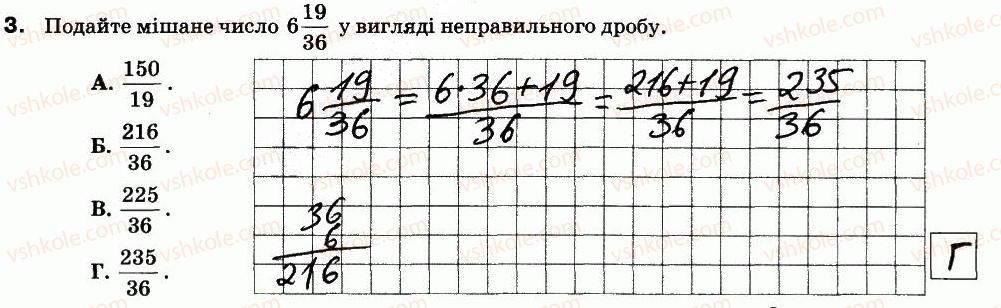 3. Подайте мішане число 6 19/36 у вигляді неправильного дробу.
А. 150/19 .
Б. 216/36 .
В. 225/36 .
Г. 235/36 .
6 19/36 = (6·36+19)/36 = (216+19)/36 = 235/36
36
6
216
Г
vshkole.com